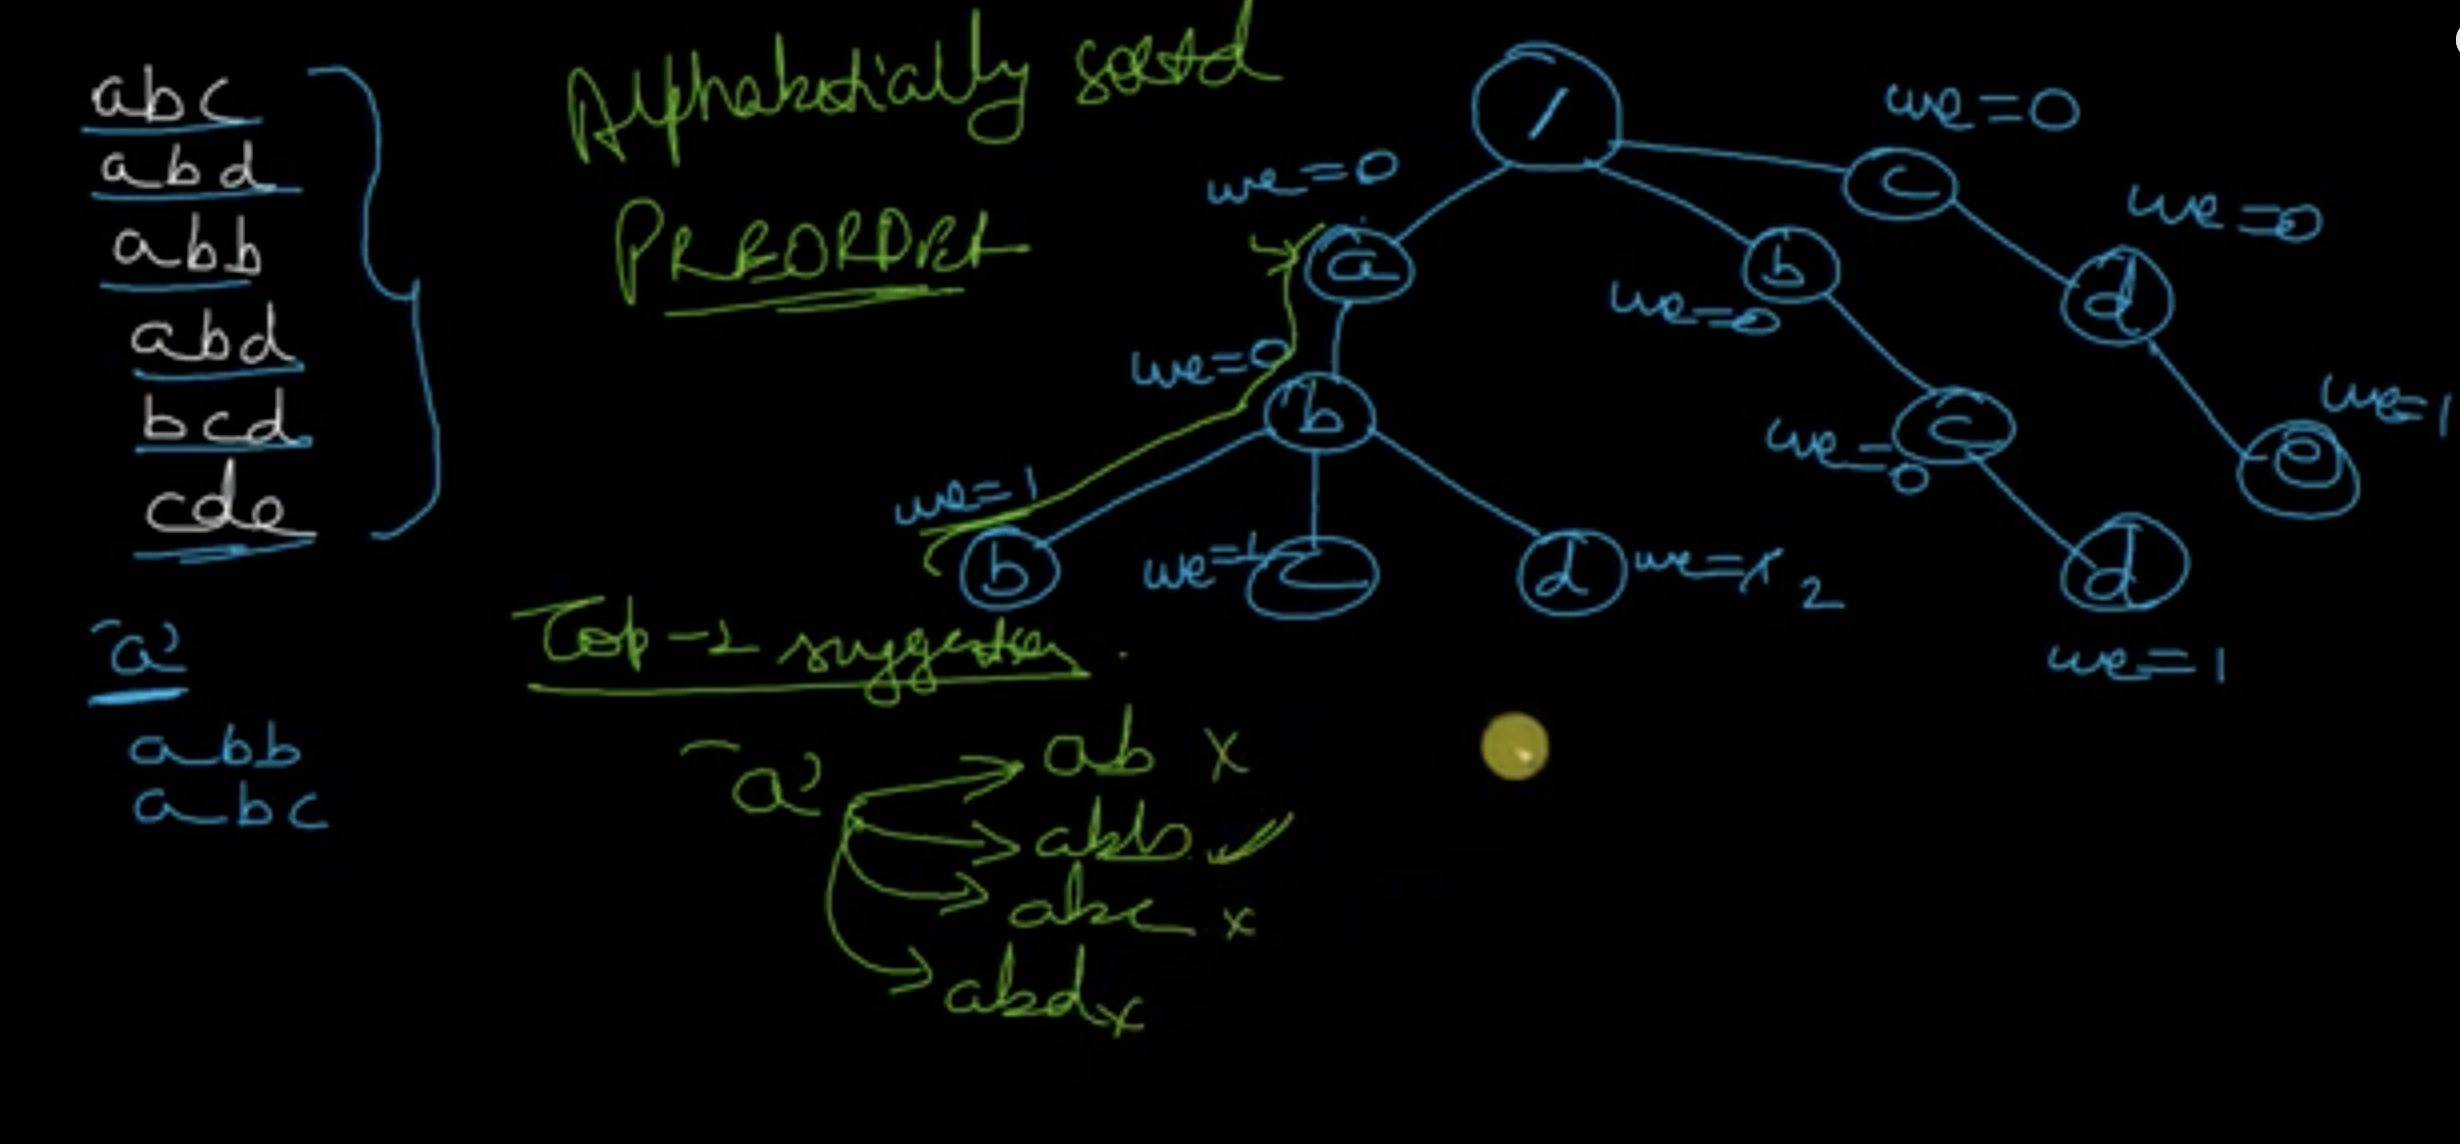 abc
abd
abb
abd
bcd
cde
"a"
abb
abc
Alphabetically sorted
PREORDER
Top-2 suggestion.
"a"
ab x
abb ✓
abc x
abd x
/
we=0
c
we=0
d
we=1
e
we=0
a
we=0
b
we=0
c
we=1
d
we=0
b
we=1
b
we=1
c
d
we=1 2